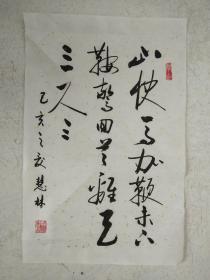 山快马加鞭未下
鞍惊回首离天
三尺三
乙亥之秋慧林